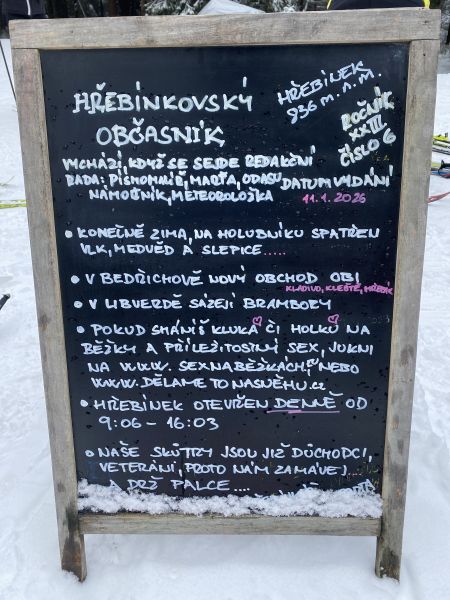 HŘEBÍNKOVSKÝ
OBČASNÍK
HŘEBÍNEK
936 m.n.m.
ROČNÍK
XXIII
ČÍSLO 6
VYCHÁZÍ, KDYŽ SE SEJDE REDAKČNÍ
RADA: PÍSMOMALÍŘ, MARŤA, ODASU
NÁMOŘNÍK, METEOROLOŽKA
DATUM VYDÁNÍ
11.1.2026
• KONEČNĚ ZIMA, NA HOLUBNÍKU SPATŘEN
VLK, MEDVĚD A SLEPICE.....
• V BEDŘICHOVĚ NOVÝ OBCHOD OBI
KLADIVO, KLEŠTĚ, HŘEBÍK
• V LIBVERDĚ SÁZEJÍ BRAMBORY
• POKUD SHÁNÍŠ KLUKA ČI HOLKU NA
BĚŽKY A PŘÍLEŽITOSTNÍ SEX, JUKNI
NA WWW.SEXNABĚŽKÁCH.CZ NEBO
WWW.DĚLAMETONASNĚHU.cz
• HŘEBÍNEK OTEVŘEN DENNĚ OD
9:06 - 16:03
• NAŠE SKÚTRY JSOU JIŽ DŮCHODCI,
VETERÁNI, PROTO NÁM ZAMÁVEJ....
A DRŽ PALCE....